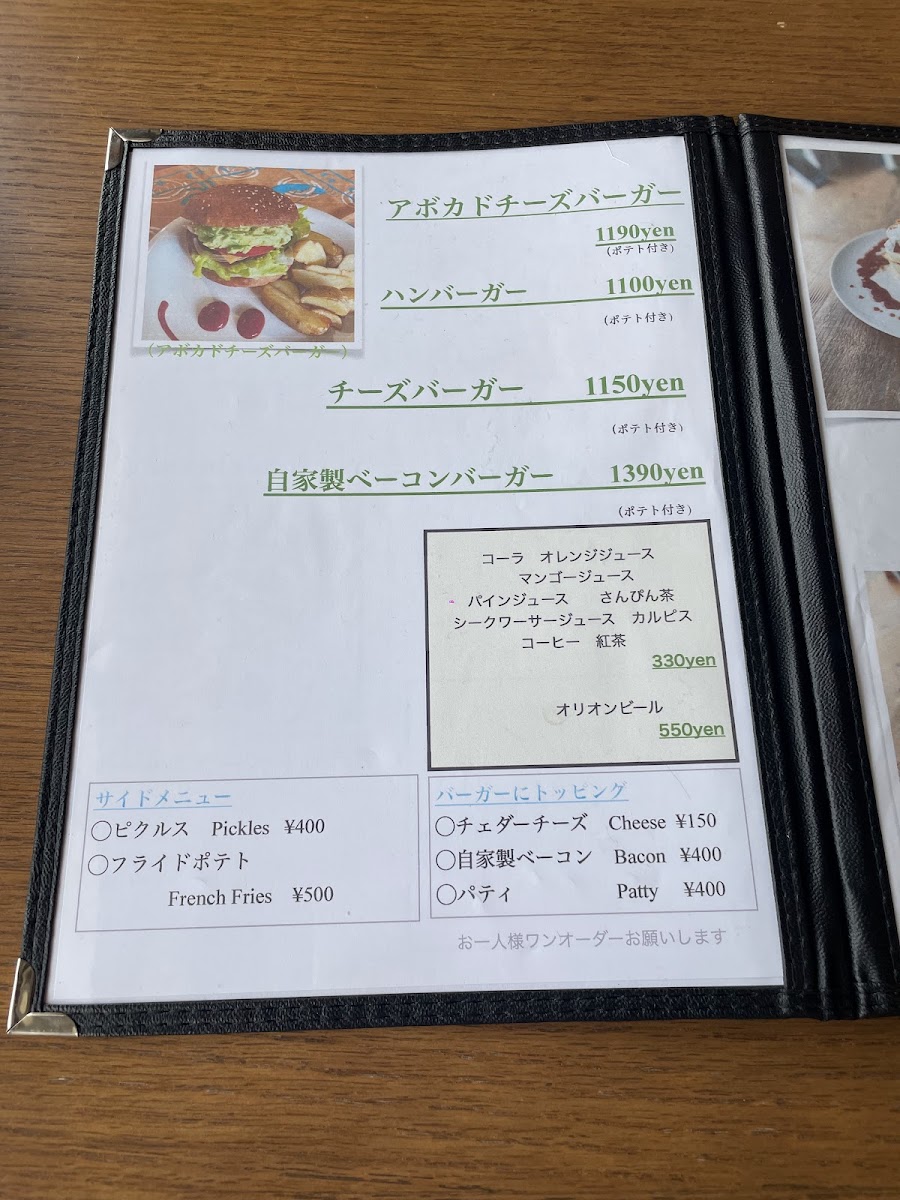 アボカドチーズバーガー
1190yen
(ポテト付き)
ハンバーガー 1100yen
(ポテト付き)
(アボカドチーズバーガー)
チーズバーガー 1150yen
(ポテト付き)
自家製ベーコンバーガー 1390yen
(ポテト付き)
コーラ オレンジジュース
マンゴージュース
パインジュース さんぴん茶
シークワーサージュース カルピス
コーヒー 紅茶
330yen
オリオンビール
550yen
サイドメニュー
○ピクルス Pickles ¥400
○フライドポテト
French Fries ¥500
バーガーにトッピング
○チェダーチーズ Cheese ¥150
○自家製ベーコン Bacon ¥400
○パティ Patty ¥400
お一人様ワンオーダーお願いします